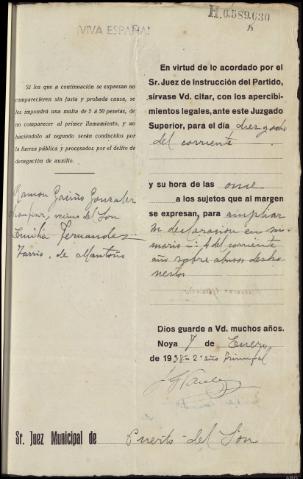 ¡VIVA ESPAÑA!
H.0.589.030
Si los que a continuación se expresan no
compareciesen sin justa y probada causa, se
les impondrá una multa de 5 á 50 pesetas, de
no comparecer al primer llamamiento, y no
haciéndolo al segundo serán conducidos por
la fuerza pública y procesados por el delito de
denegación de auxilio.
Ramon
vecino de Son
Emilia Fernandez
En virtud de lo acordado por el
Sr. Juez de Instrucción del Partido,
sírvase Vd. citar, con los apercibi-
mientos legales, ante este Juzgado
Superior, para el día diez y ocho
del corriente
y su hora de las once
a los sujetos que al margen
se expresan, para ampliar
declaración en su-
mario del corriente
año sobre abusos desho-
nestos
Dios guarde a Vd. muchos años.
Noya 7 de Enero
de 1938 2º año triunfal
Sr. Juez Municipal de Puerto del Son